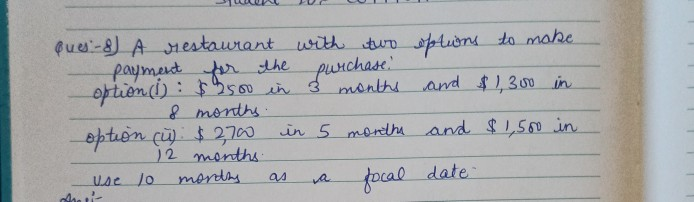 Ques:-8) A restaurant with two options to make
payment for the purchase:
option(i) : $ 2500 in 3 months and $ 1,300 in
8 months.
option (ii): $ 2,700 in 5 months and $ 1,500 in
12 months.
Use 10 months as a focal date.